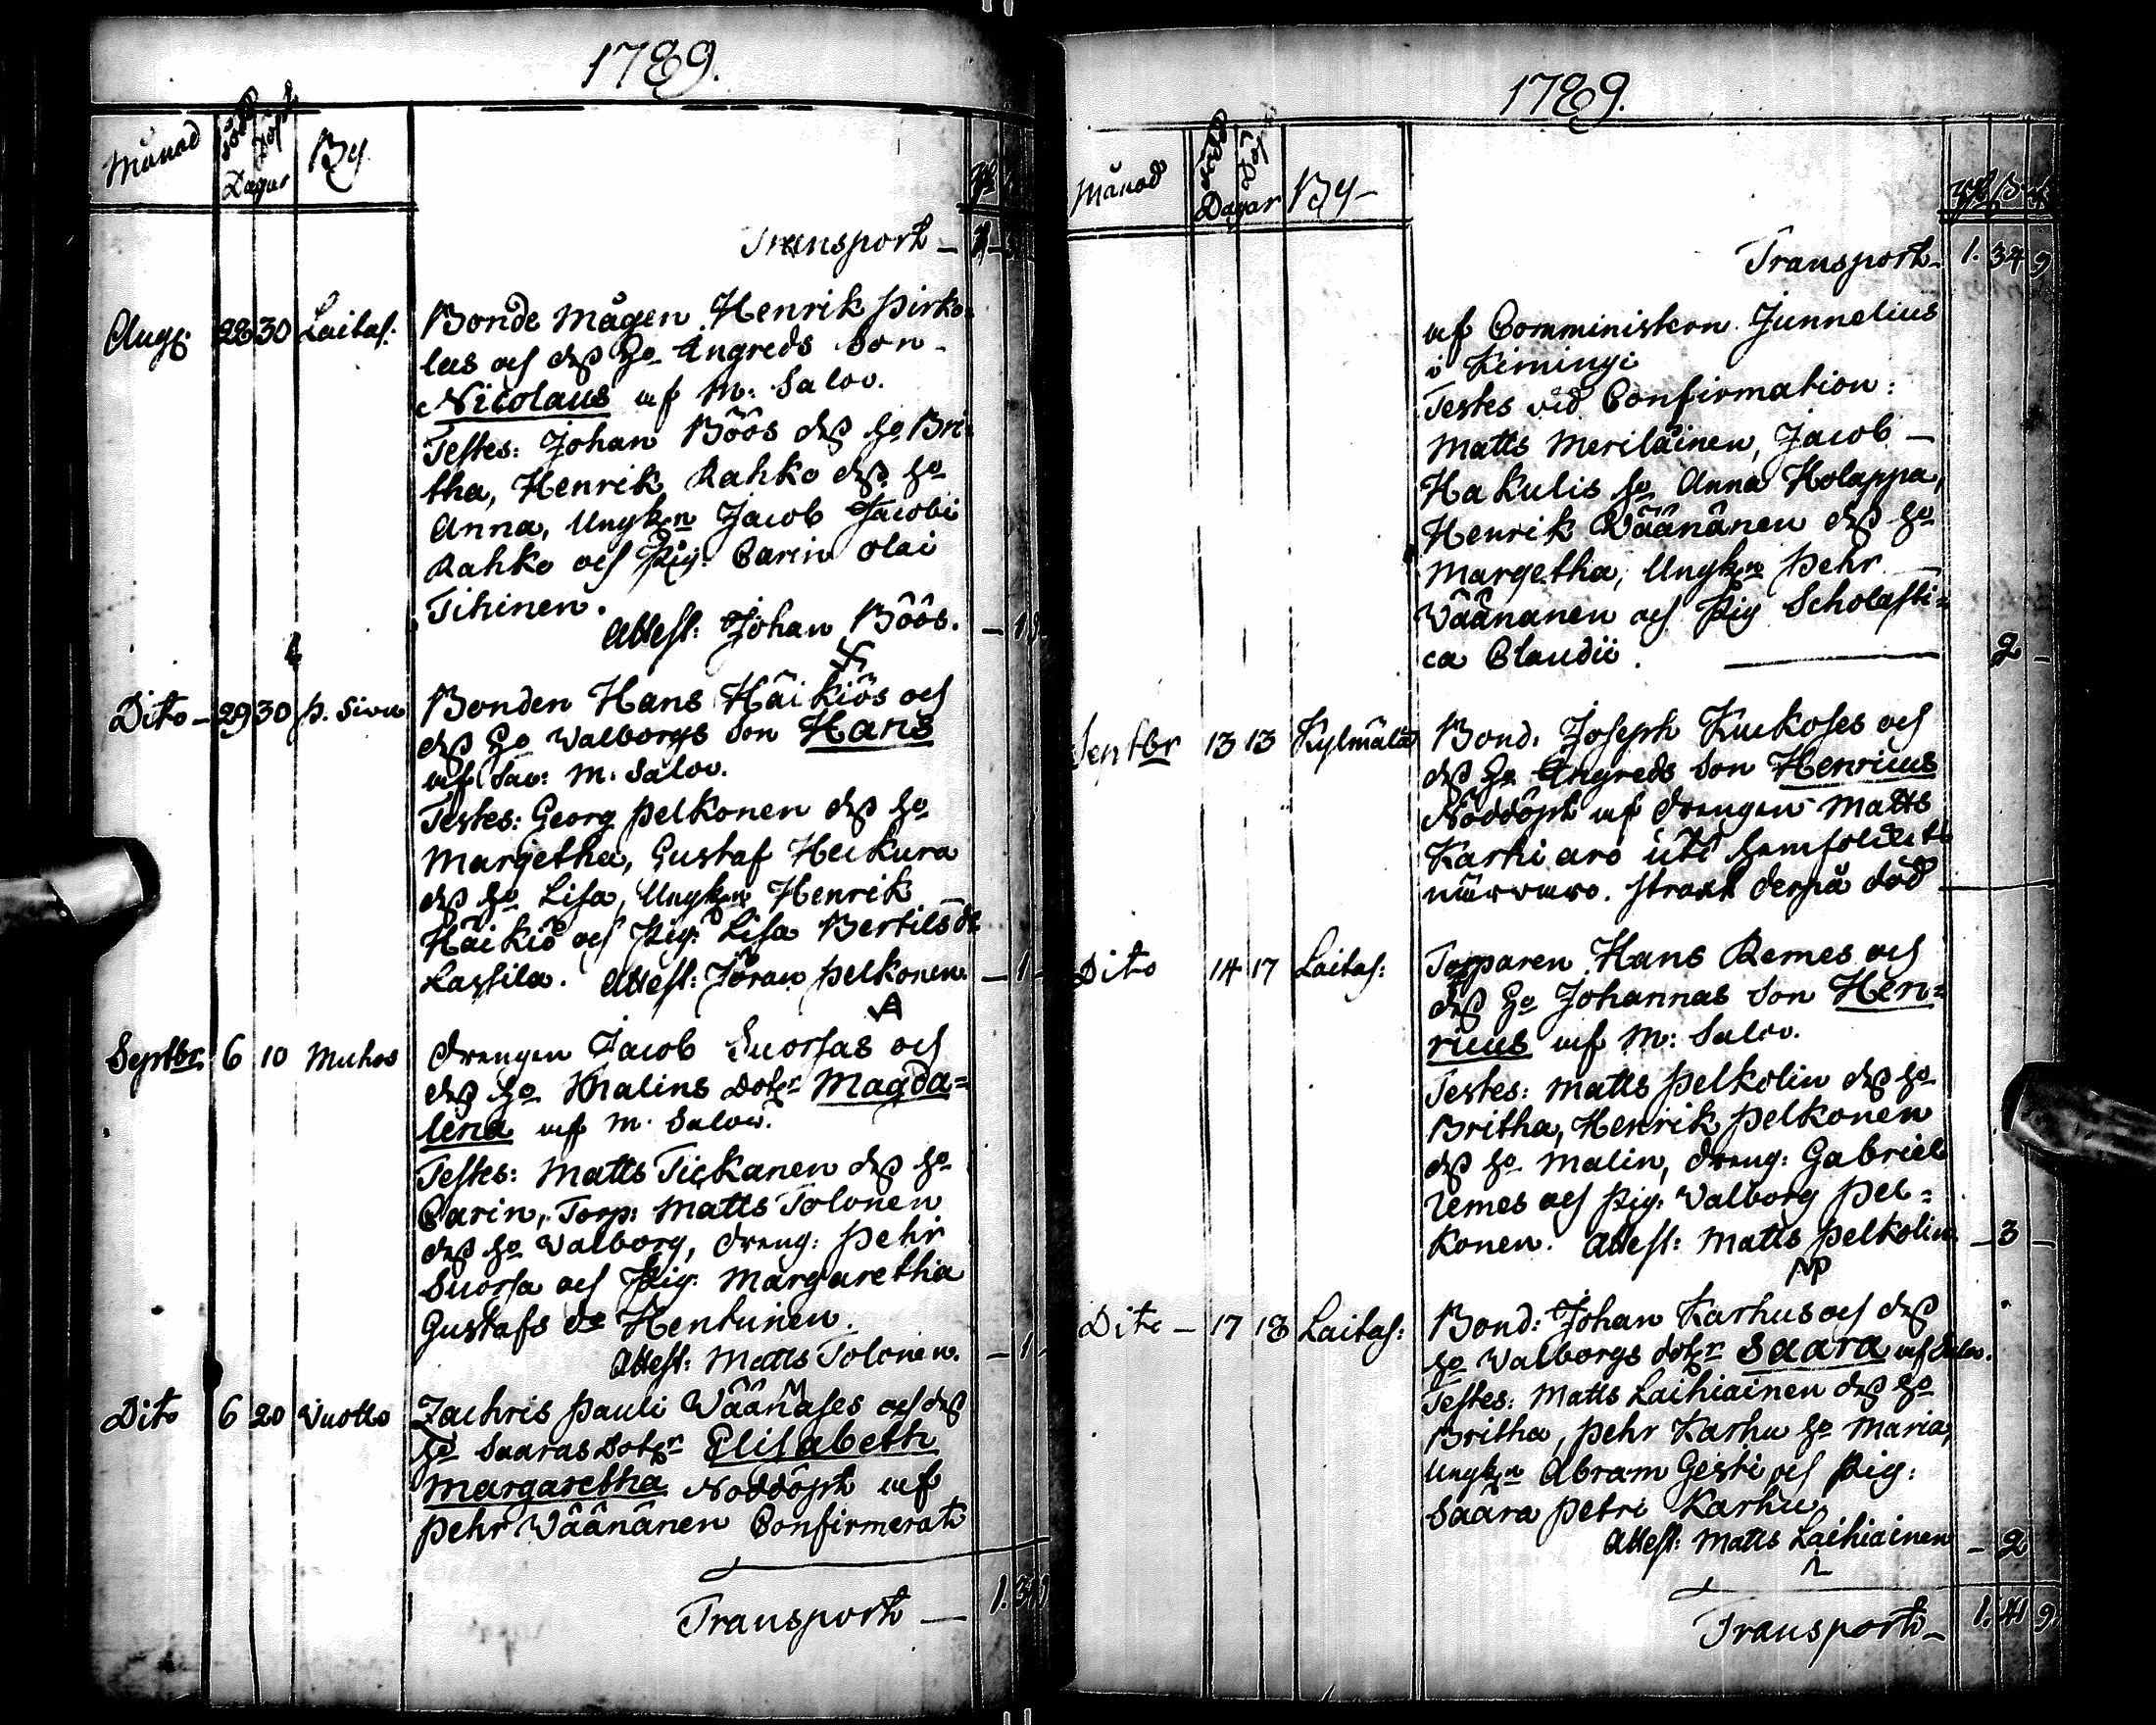 1789.
Månad Född Döpt Dagar By
Transport — 1 —
Aug: 28 30 Laitas: Bonde mågen Henrik Pirko-
las och deß ho Ingreds Son
Nicolaus af M: Salov.
Testes: Johan Böös deß ho Bri-
tha, Henrik Rahko deß ho
Anna, Ungk:n Jacob Jacobi
Rahko och Pig: Carin Olai
Tihinen.
Attest: Johan Böös.
Dito — 29 30 P. Sivu Bonden Hans Häikiös och
deß ho Walborgs Son Hans
af Sac: M. Salov.
Testes: Georg Pelkonen deß ho
Margetha, Gustaf Heikura
deß ho Lisa, Ungk:n Henrik
Häikiö och Pig: Lisa Bertils dr
Lastila. Attest: Jöran Pelkonen. — 1 —
Septbr: 6 10 Muhos Drengen Jacob Suorsas och
deß ho Malins Dotr Magda=
lena af M. Salov.
Testes: Matts Tickanen deß ho
Carin, Torp: Matts Tolonen
deß ho Walborg, Dreng: Pehr
Suorsa och Pig: Margaretha
Gustafs dr Hentunen.
Attest: Matts Tolonen. — 1 —
Dito 6 20 Vuotto Zachris Pauli Wäänäses och deß
ho Saaras Dotr Elisabeth
Margaretha Nöddöpt af
Pehr Wäänänen Confirmerat
Transport — 1. 34
1789.
Månad Född Döpt Dagar By
Transport — 1. 34 9
af Comministern Junnelius
i Kiminge
Testes vid Confirmation:
Matts Meriläinen, Jacob —
Hakulis ho Anna Holappa,
Henrik Wäänänen deß ho
Margetha, Ungk:n Pehr —
Wäänanen och Pig Scholasti=
ca Claudii. — 2 —
Septbr 13 13 Kylmälä Bond: Joseph Kukoses och
deß ho Ingreds Son Henricus
Nöddöpt af Drengen Matts
Karhi aro uti hemfolckets
närvaro. strax derpå död
Dito 14 17 Laitas: Torparen Hans Remes och
deß ho Johannas Son Hen=
ricus af M: Salov.
Testes: Matts Pelkolin deß ho
Britha, Henrik Pelkonen
deß ho Malin, Dreng: Gabriel
Remes och Pig: Walborg Pel=
konen. Attest: Matts Pelkolin. — 3 —
Dito — 17 18 Laitas: Bond: Johan Karhus och deß
ho Walborgs dotr Saara af Salov.
Testes: Matts Laihiainen deß ho
Britha, Pehr Karhu ho Maria,
Ungk:n Abram Gesti och Pig:
Saara Petri Karhu
Attest: Matts Laihiainen — 2
Transport — 1. 41 9.